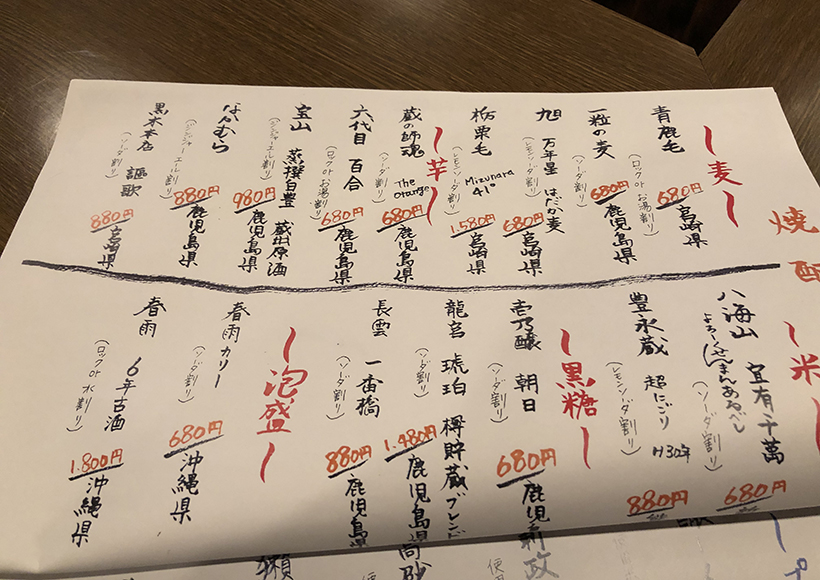 焼酎
〜麦〜
青鹿毛
(ロックorお湯割り)
680円
宮崎県
一粒の麦
(ソーダ割り)
680円
鹿児島県
旭 万年星 はだか麦
(ロックorお湯割り)
680円
宮崎県
栃栗毛
Mizunara
41°
(レモンソーダ割り)
1.580円
宮崎県
〜芋〜
蔵の師魂
The orange
(ソーダ割り)
680円
鹿児島県
六代目 百合
(ロックorお湯割り)
680円
鹿児島県
宝山 蒸撰白豊 蔵出原酒
(ジンジャーエール割り)
980円
鹿児島県
ほんむら
(ジンジャーエール割り)
880円
鹿児島県
黒木本店 謳歌
(ソーダ割り)
880円
宮崎県
〜米〜
八海山 宜有千萬
よろしくせんまんあるべし
(ソーダ割り)
680円
豊永蔵 超にごり
H30年
(レモンソーダ割り)
880円
〜黒糖〜
壱乃醸 朝日
(ソーダ割り)
680円
鹿児
龍宮 琥珀 樽貯蔵ブレンド
(ソーダ割り)
1.480円
鹿児島県
長雲 一番橋
(ソーダ割り)
880円
鹿児島県
〜泡盛〜
春雨カリー
(ソーダ割り)
680円
沖縄県
春雨 6年古酒
(ロックor水割り)
1.800円
沖縄県